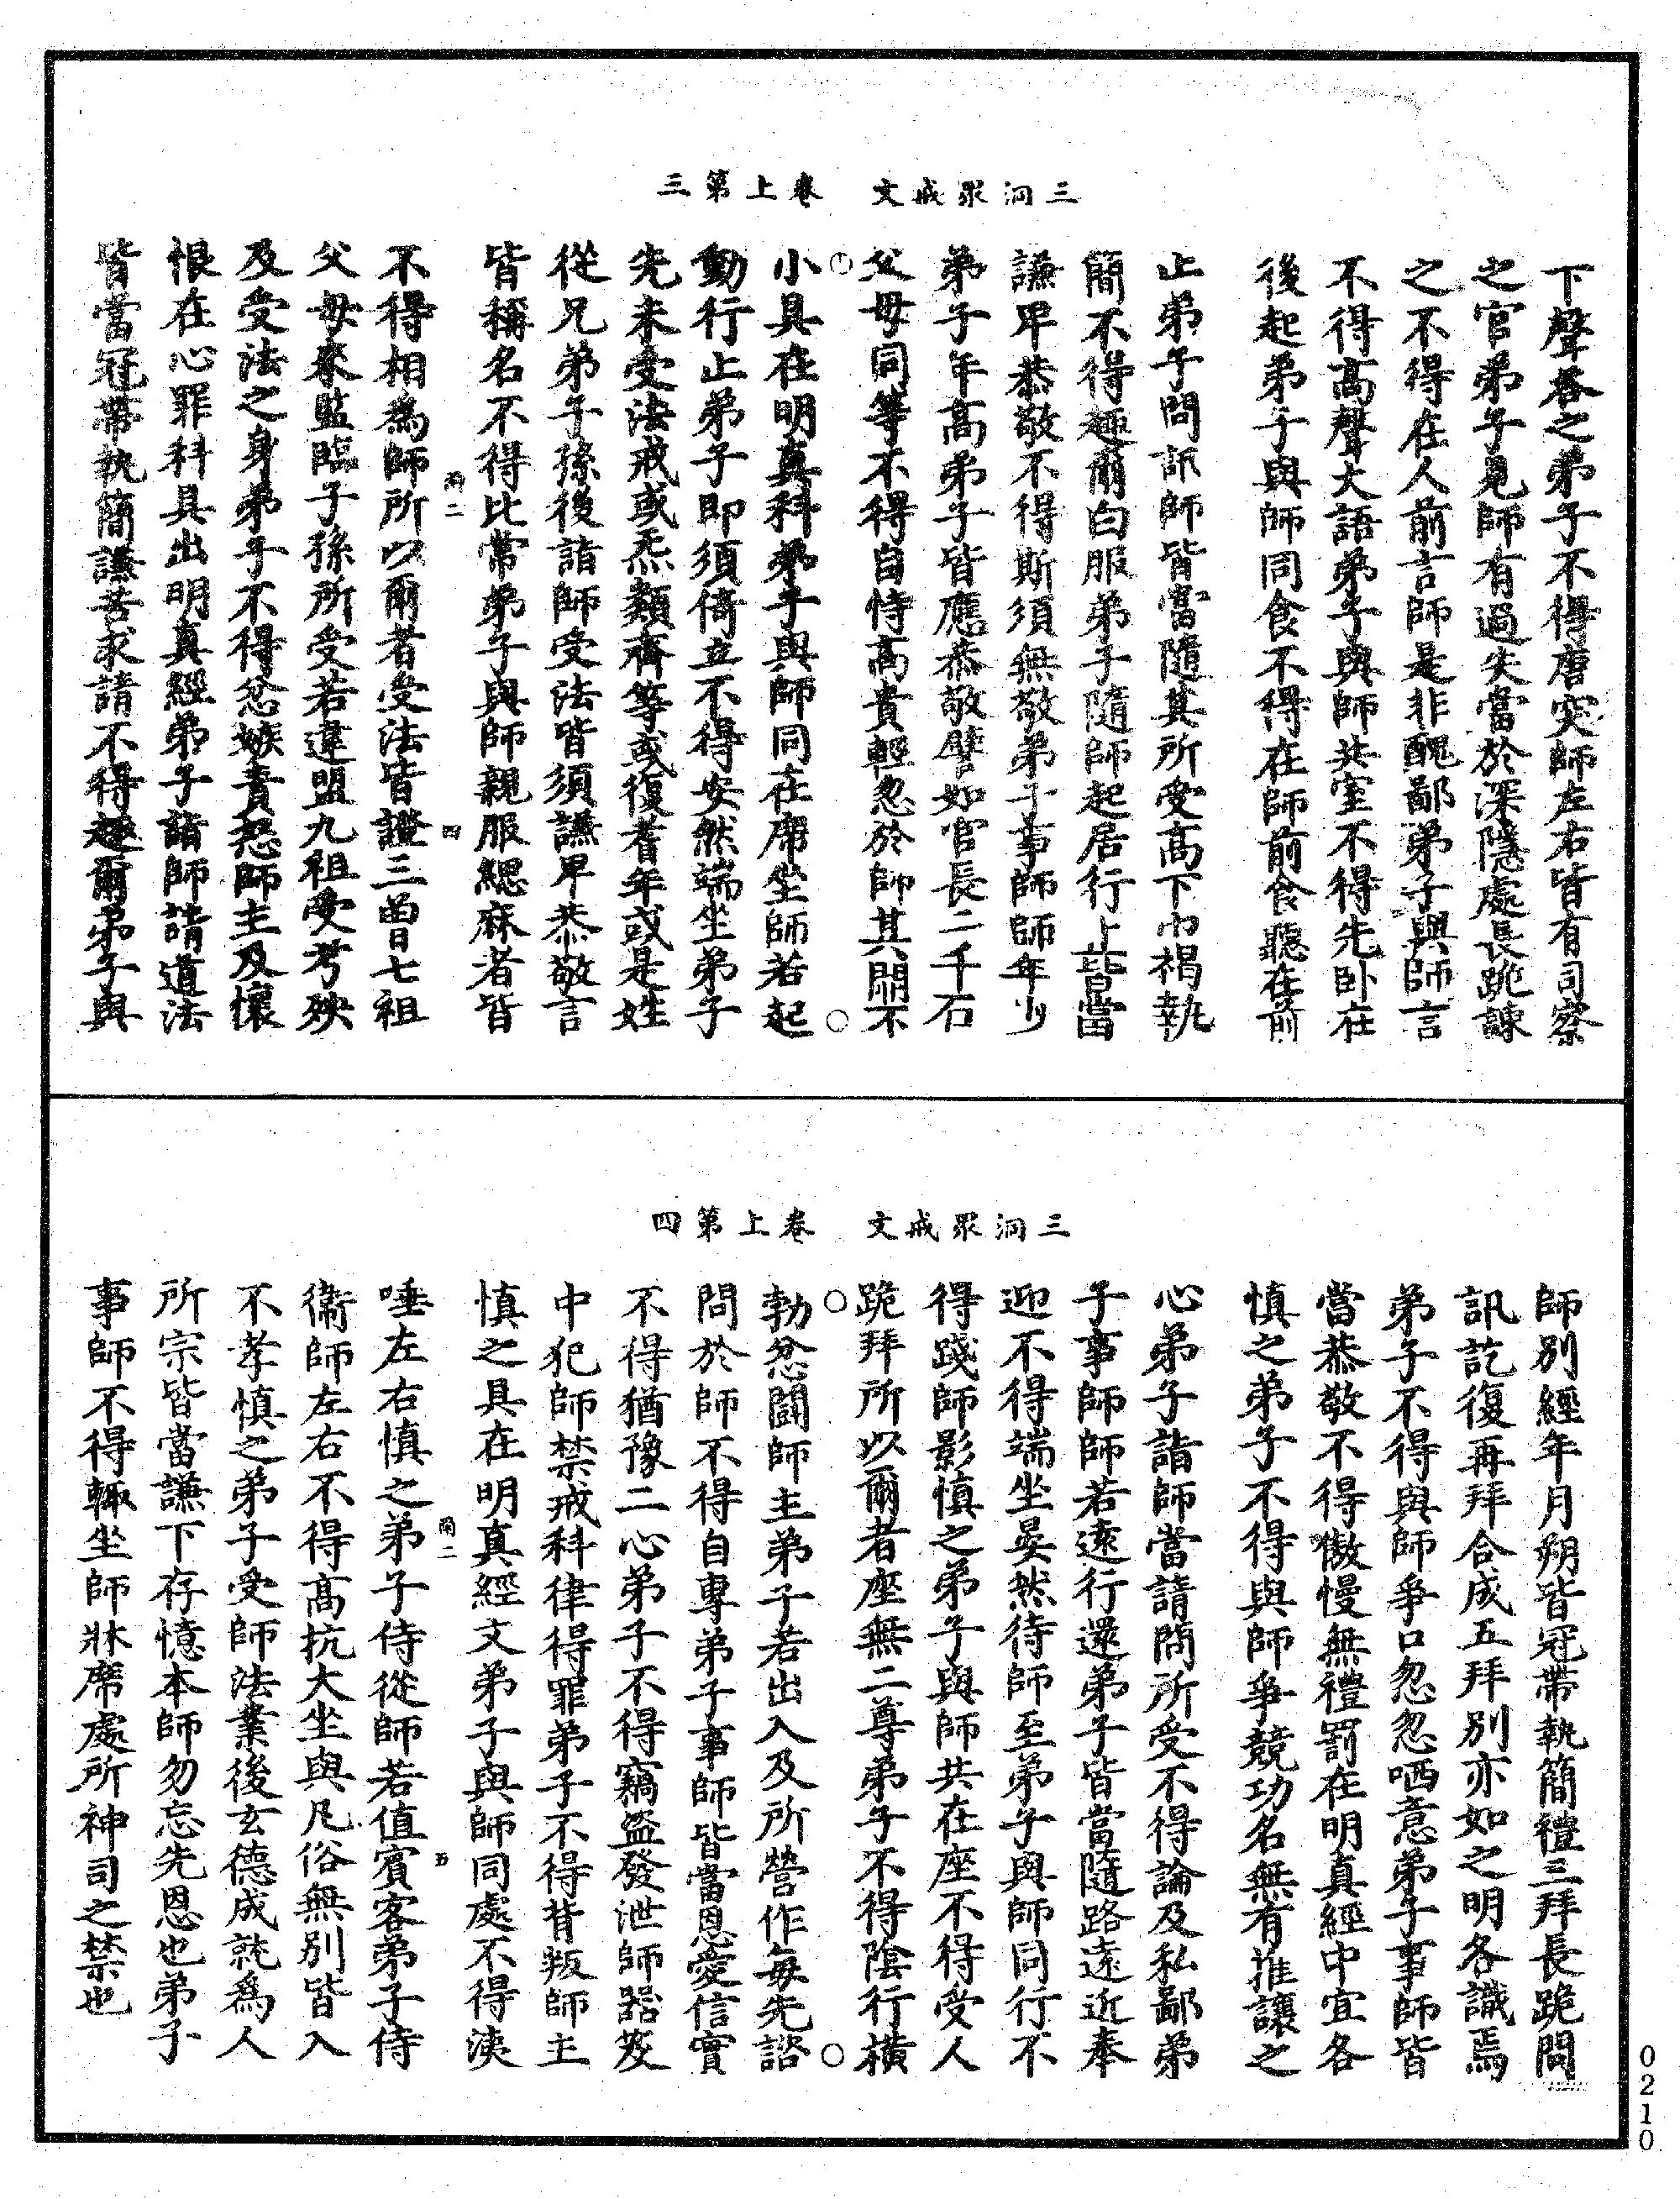 三洞眾戒文　卷上第三
下聲答之弟子不得唐突師左右皆有司察
之官弟子見師有過失當於深隱處長跪諫
之不得在人前言師是非醜鄙弟子與師言
不得高聲大語弟子與師共室不得先卧在
後起弟子與師同食不得在師前食聽在前
止弟子問訊師皆當隨其所受高下巾褐執
簡不得趣爾白服弟子隨師起居行止皆當
謙卑恭敬不得斯須無敬弟子事師師年少
弟子年高弟子皆應恭敬譬如官長二千石
父母同等不得自恃高貴輕忽於師其關不
小具在明真科弟子與師同在席坐師若起
動行止弟子即須倚立不得安然端坐弟子
先未受法戒或炁類齊等或復耆年或是姓
從兄弟子孫後詣師受法皆須謙卑恭敬言
皆稱名不得比常弟子與師親服緦麻者皆
二　四
不得相為師所以爾者受法皆證三曾七祖
父母來監臨子孫所受若違盟九祖受考殃
及受法之身弟子不得忿嫉責怒師主及懷
恨在心罪科具出明真經弟子詣師請道法
皆當冠帶執簡謙苦求請不得趣爾弟子與
三洞眾戒文　卷上第四
師別經年月朔皆冠帶執簡禮三拜長跪問
訊訖復再拜合成五拜別亦如之明各識焉
弟子不得與師爭口忽忽哂意弟子事師皆
當恭敬不得慠慢無禮罰在明真經中宜各
慎之弟子不得與師爭競功名無有推讓之
心弟子詣師當請問所受不得論及私鄙弟
子事師師若遠行還弟子皆當隨路遠近奉
迎不得端坐晏然待師至弟子與師同行不
得踐師影慎之弟子與師共在座不得受人
跪拜所以爾者座無二尊弟子不得陰行橫
勃忿鬭師主弟子若出入及所營作每先諮
問於師不得自專弟子事師皆當恩愛信實
不得猶豫二心弟子不得竊盜發泄師器笈
中犯師禁戒科律得罪弟子不得背叛師主
慎之具在明真經文弟子與師同處不得洟
二　五
唾左右慎之弟子侍從師若值賓客弟子侍
衞師左右不得高抗大坐與凡俗無別皆入
不孝慎之弟子受師法業後玄德成就為人
所宗皆當謙下存憶本師勿忘先恩也弟子
事師不得輒坐師牀席處所神司之禁也
0210